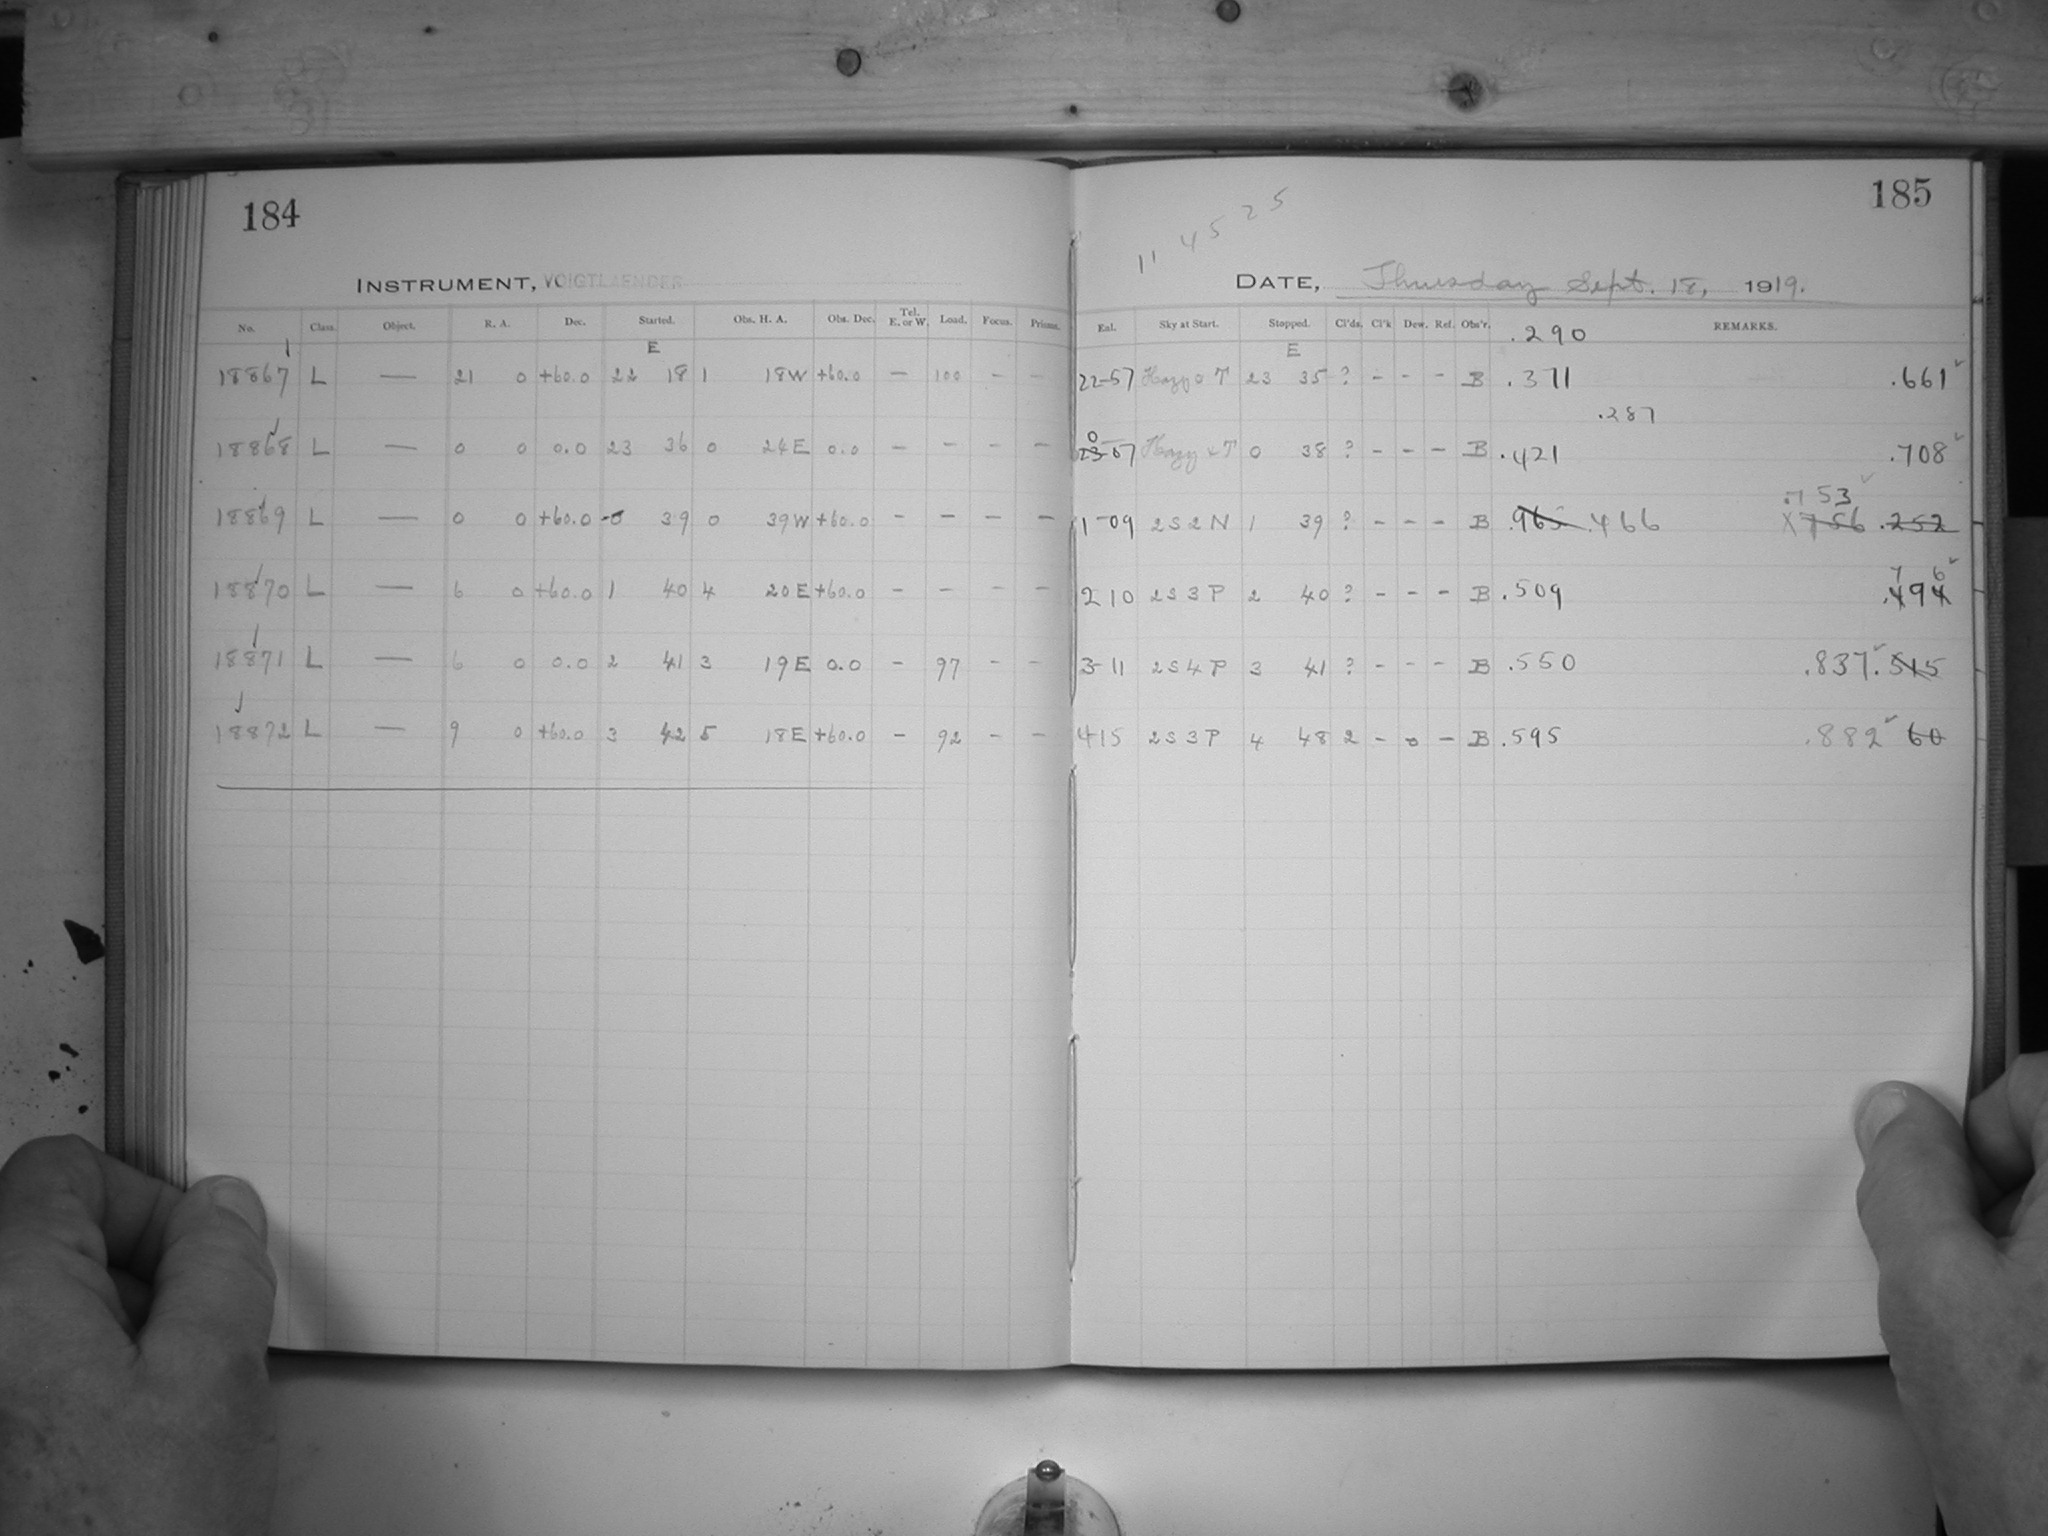 184
INSTRUMENT, VOIGTLAENDER
No. Class. Object. R. A. Dec. Started. Obs. H. A. Obs. Dec. Tel. E. or W. Load. Focus. Prisms.
E
18867 L — 21 0 +60.0 22 18 1 18W +60.0 — 100 — —
18868 L — 0 0 0.0 23 36 0 24E 0.0 — — — —
18869 L — 0 0 +60.0 0 39 0 39W +60.0 — — — —
18870 L — 6 0 +60.0 1 40 4 20E +60.0 — — — —
18871 L — 6 0 0.0 2 41 3 19E 0.0 — 97 — —
18872 L — 9 0 +60.0 3 42 5 18E +60.0 — 92 — —
185
11 45 25
DATE, Thursday Sept. 18, 1919.
Enl. Sky at Start. Stopped. Cl'ds. Cl'k Dew. Ref. Obs'r. REMARKS.
.290
E
22-57 Hazy 0 T 23 35 ? - - - B .371 .661
.287
0
23-57 Hazy T 0 38 ? - - - B .421 .708
.753
1-09 2S2N 1 39 ? - - - B .965 .466 X756 .252
7 6
2 10 2S3P 2 40 ? - - - B .509 .494
3-11 2S4P 3 41 ? - - - B .550 .837 .515
415 2S3P 4 48 2 - 0 - B .595 .882 60